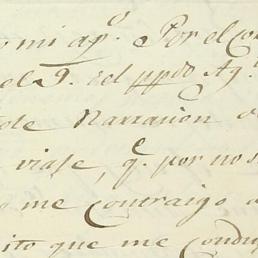 mi ap.º Por el Co
el 9. del ppdo Ag.º
Narracion
viaje, q.e por no s
me contraigo a
ito que me condu